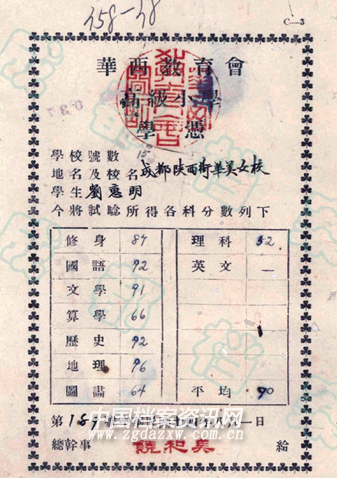 358-38
C—3
華西教育會
高級小學
學憑
學校號數
地名及校名 成都陝西街華美女校
學生 劉惠明
今將試驗所得各科分數列下
修身 87 理科 92
國語 92 英文 —
文學 91
算學 66
歷史 92
地理 96
圖畫 64 平均 90
第 189
日
總幹事 饒和美 給
中国档案资讯网
www.zgdazxw.com.cn